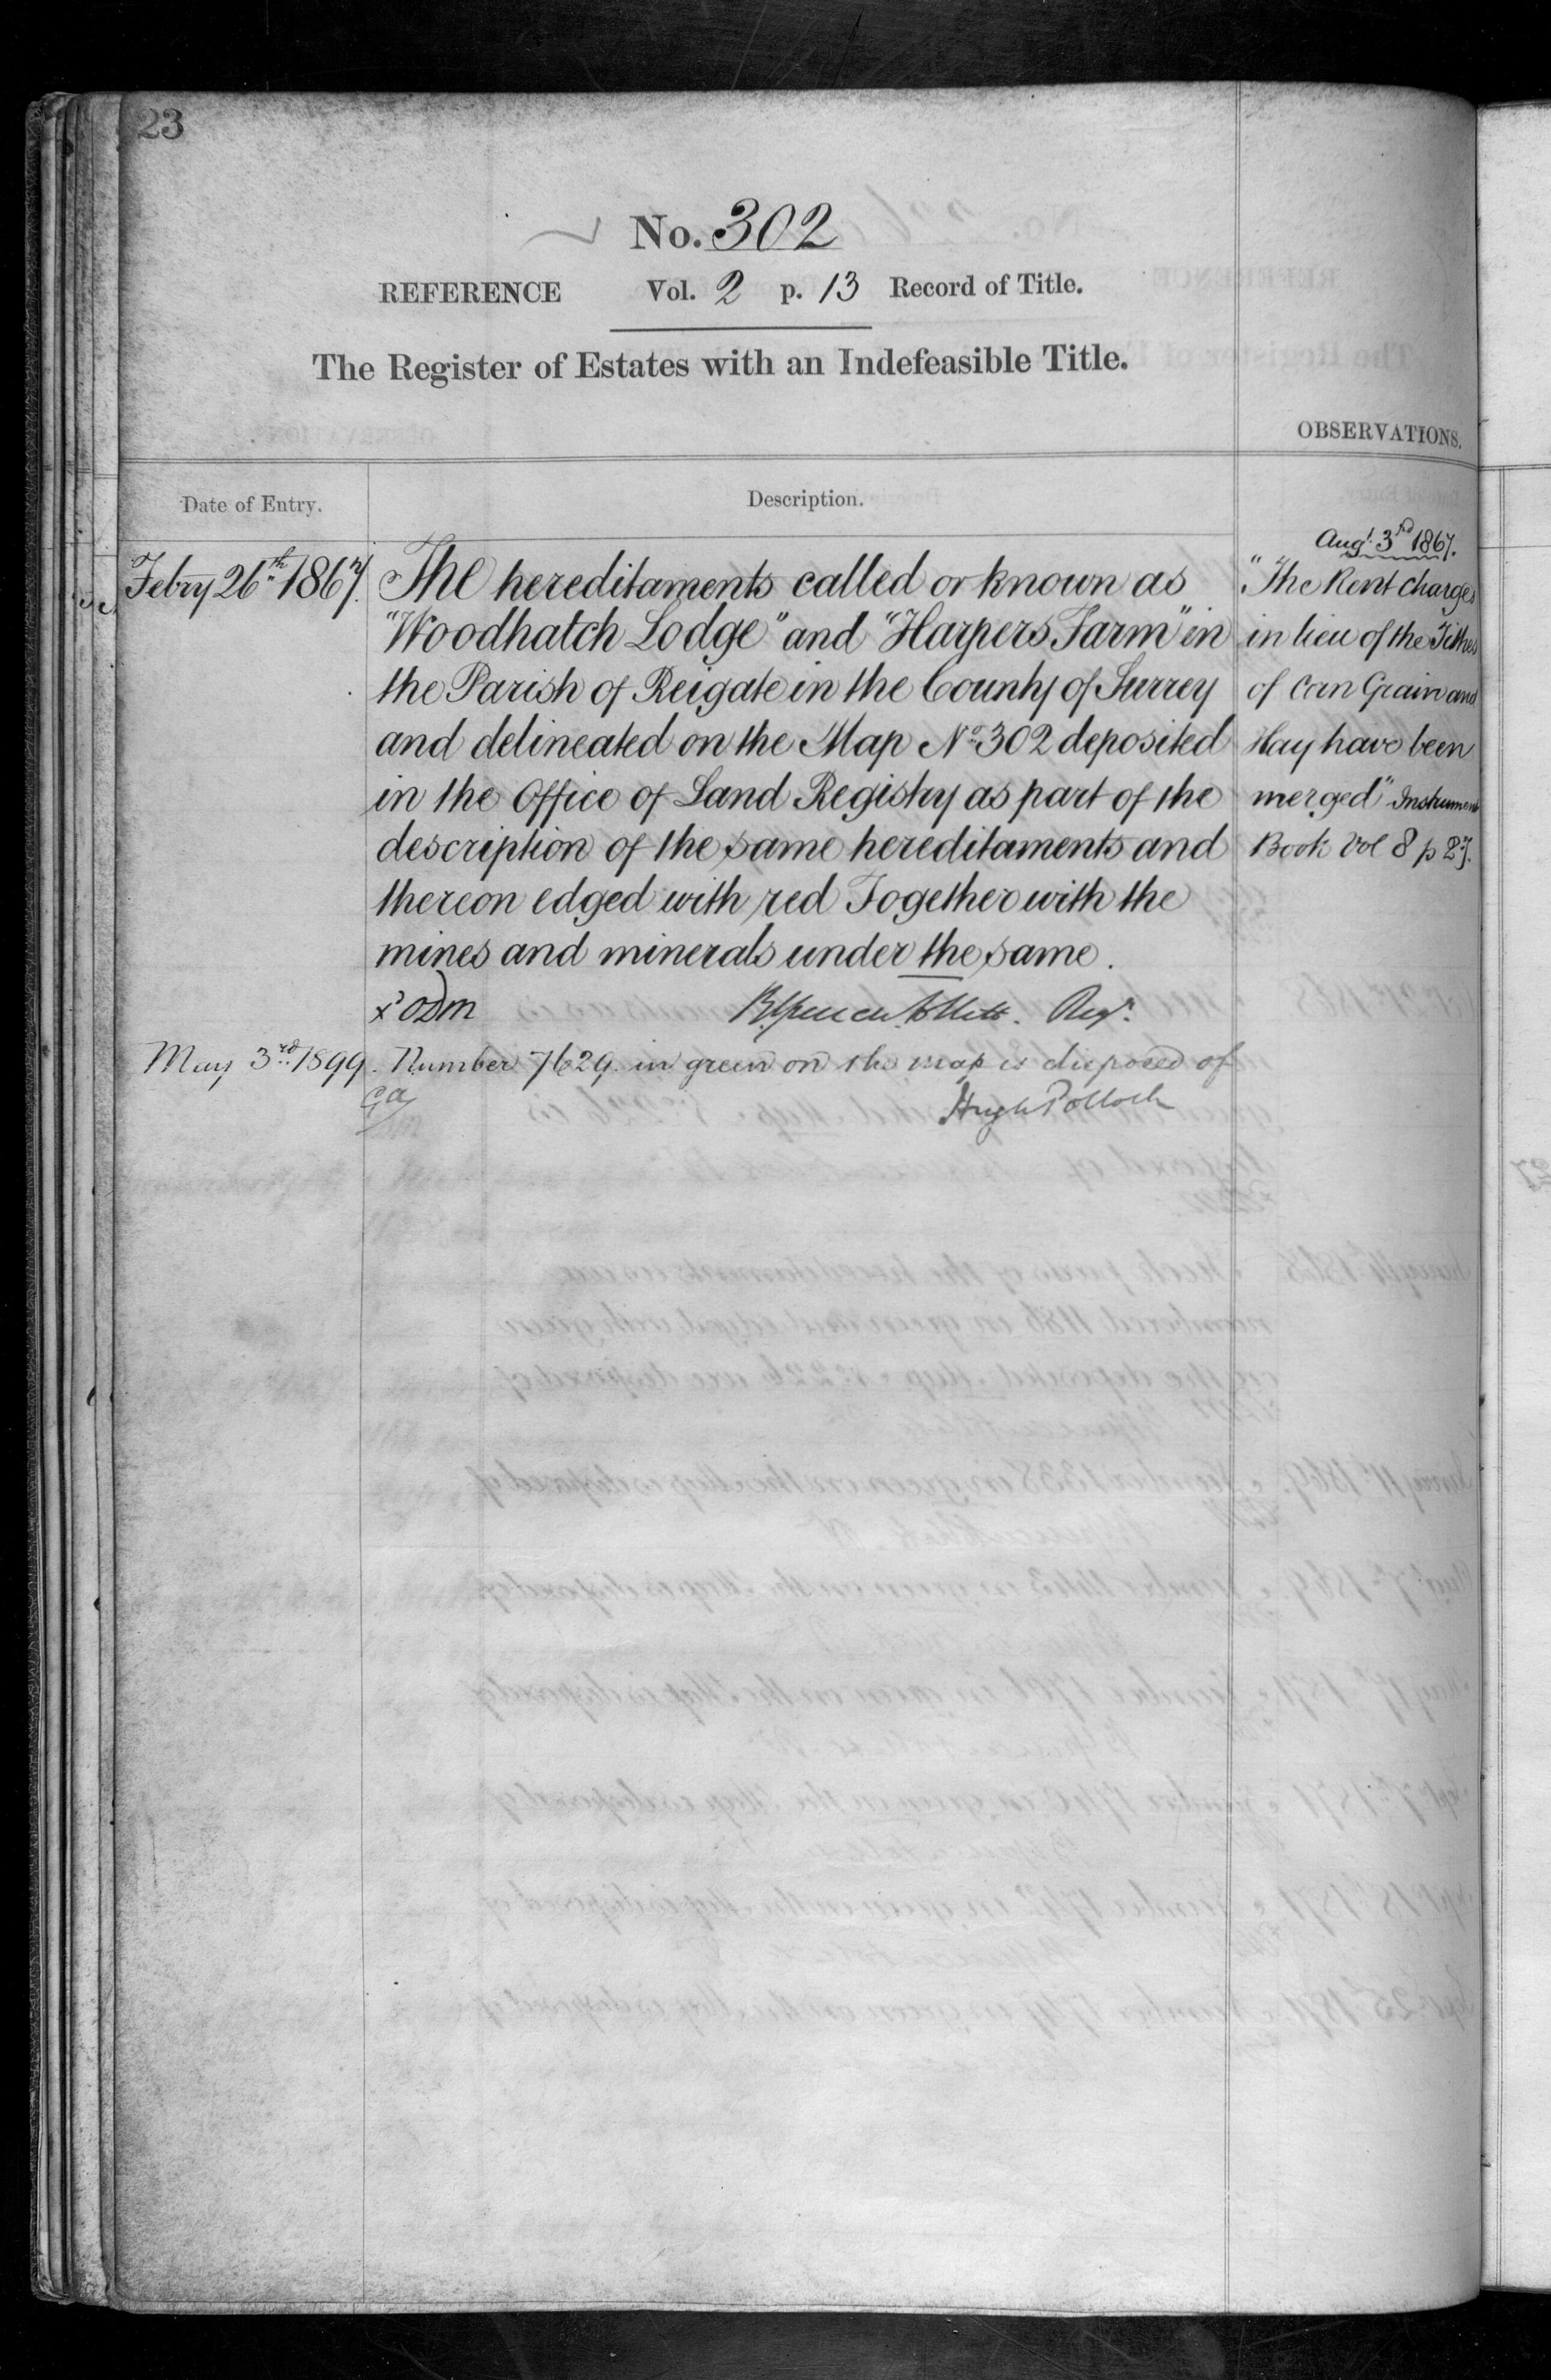 23
No. 302
REFERENCE Vol. 2 p. 13 Record of Title.
The Register of Estates with an Indefeasible Title.
OBSERVATIONS.
Date of Entry.
Description.
Febry 26th 1867.
The hereditaments called or known as
"Woodhatch Lodge" and "Harpers Farm" in
the Parish of Reigate in the County of Surrey
and delineated on the Map No. 302 deposited
in the Office of Land Registry as part of the
description of the same hereditaments and
thereon edged with red Together with the
mines and minerals under the same.
Regr.
Augt. 3rd 1867.
"The Rent charges
in lieu of the Tithes
of Corn Grain and
Hay have been
merged" Instrument
Book Vol 8 p 27.
May 3rd 1899. Number 7629 in green on the map is disposed of
Hugh Pollock